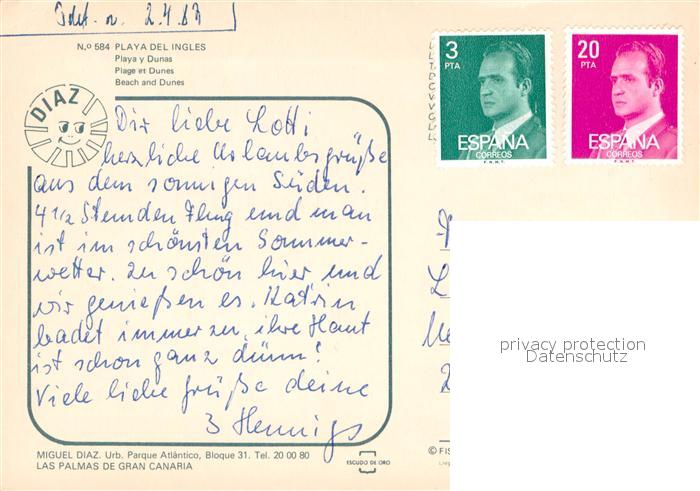 2.4.83
N.º 584 PLAYA DEL INGLES
Playa y Dunas
Plage et Dunes
Beach and Dunes
DIAZ
Dir liebe Lotti
herzliche Urlaubsgrüße
aus dem sonnigen Süden.
4 1/2 Stunden Flug und man
ist im schönsten Sommer-
wetter. Zu schön hier und
wir genießen es. Katrin
badet immer zu, ihre Haut
ist schon ganz dünn!
Viele liebe Grüße deine
3 Hennigs
3
PTA
ESPAÑA
CORREOS
F.N.M.T.
20
PTA
ESPAÑA
CORREOS
F.N.M.T.
privacy protection
Datenschutz
MIGUEL DIAZ. Urb. Parque Atlántico, Bloque 31. Tel. 20 00 80
LAS PALMAS DE GRAN CANARIA
ESCUDO DE ORO
© FIS